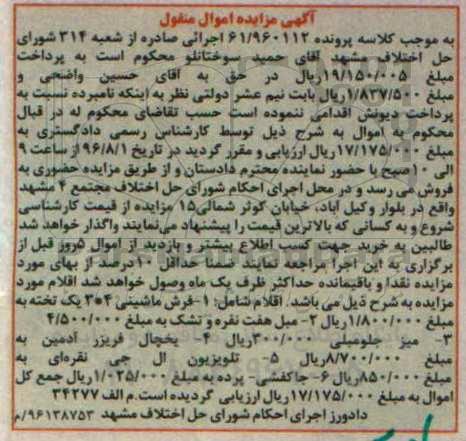 آگهی مزایده اموال منقول
به موجب کلاسه پرونده ۶۱/۹۶۰۱۱۲ اجرائی صادره از شعبه ۳۱۴ شورای
حل اختلاف مشهد آقای حمید سوختانلو محکوم است به پرداخت
مبلغ ۱۹/۱۵۰/۰۰۵ریال در حق به آقای حسین واضحی و
مبلغ ۱/۸۳۷/۵۰۰ریال بابت نیم عشر دولتی نظر به اینکه نامبرده نسبت به
پرداخت دیونش اقدامی ننموده است حسب تقاضای محکوم له در قبال
محکوم به اموال به شرح ذیل توسط کارشناس رسمی دادگستری به
مبلغ ۱۷/۱۷۵/۰۰۰ریال ارزیابی و مقرر گردید در تاریخ ۹۶/۸/۱از ساعت ۹
الی ۱۰صبح با حضور نماینده محترم دادستان و از طریق مزایده حضوری به
فروش می رسد و در محل اجرای احکام شورای حل اختلاف مجتمع ۴ مشهد
واقع در بلوار وکیل آباد، خیابان کوثر شمالی۱۵ مزایده از قیمت کارشناسی
شروع و به کسانی که بالاترین قیمت را پیشنهاد می‌نمایند واگذار خواهد شد
طالبین به خرید جهت کسب اطلاع بیشتر و بازدید از اموال ۵روز قبل از
برگزاری به این اجرا مراجعه نمایند ضمنا حداقل ۱۰درصد از بهای مورد
مزایده نقدا و باقیمانده حداکثر ظرف یک ماه وصول خواهد شد اقلام مورد
مزایده به شرح ذیل می باشد. اقلام شامل: ۱-فرش ماشینی ۴*۳ یک تخته به
مبلغ ۱/۸۰۰/۰۰۰ریال ۲- مبل هفت نفره و تشک به مبلغ ۴/۵۰۰/۰۰۰
۳- میز جلومبلی ۳۰۰/۰۰۰ریال ۴- یخچال فریزر آدمین به
مبلغ ۸/۷۰۰/۰۰۰ریال ۵- تلویزیون ال جی نقره‌ای به
مبلغ ۸۵۰/۰۰۰ریال ۶- جاکفشی- پرده به مبلغ ۱/۰۲۵/۰۰۰ریال جمع کل
اموال به مبلغ ۱۷/۱۷۵/۰۰۰ریال ارزیابی گردیده است.م الف ۳۴۲۷۷
دادورز اجرای احکام شورای حل اختلاف مشهد ۹۶۱۳۸۷۵۳/م